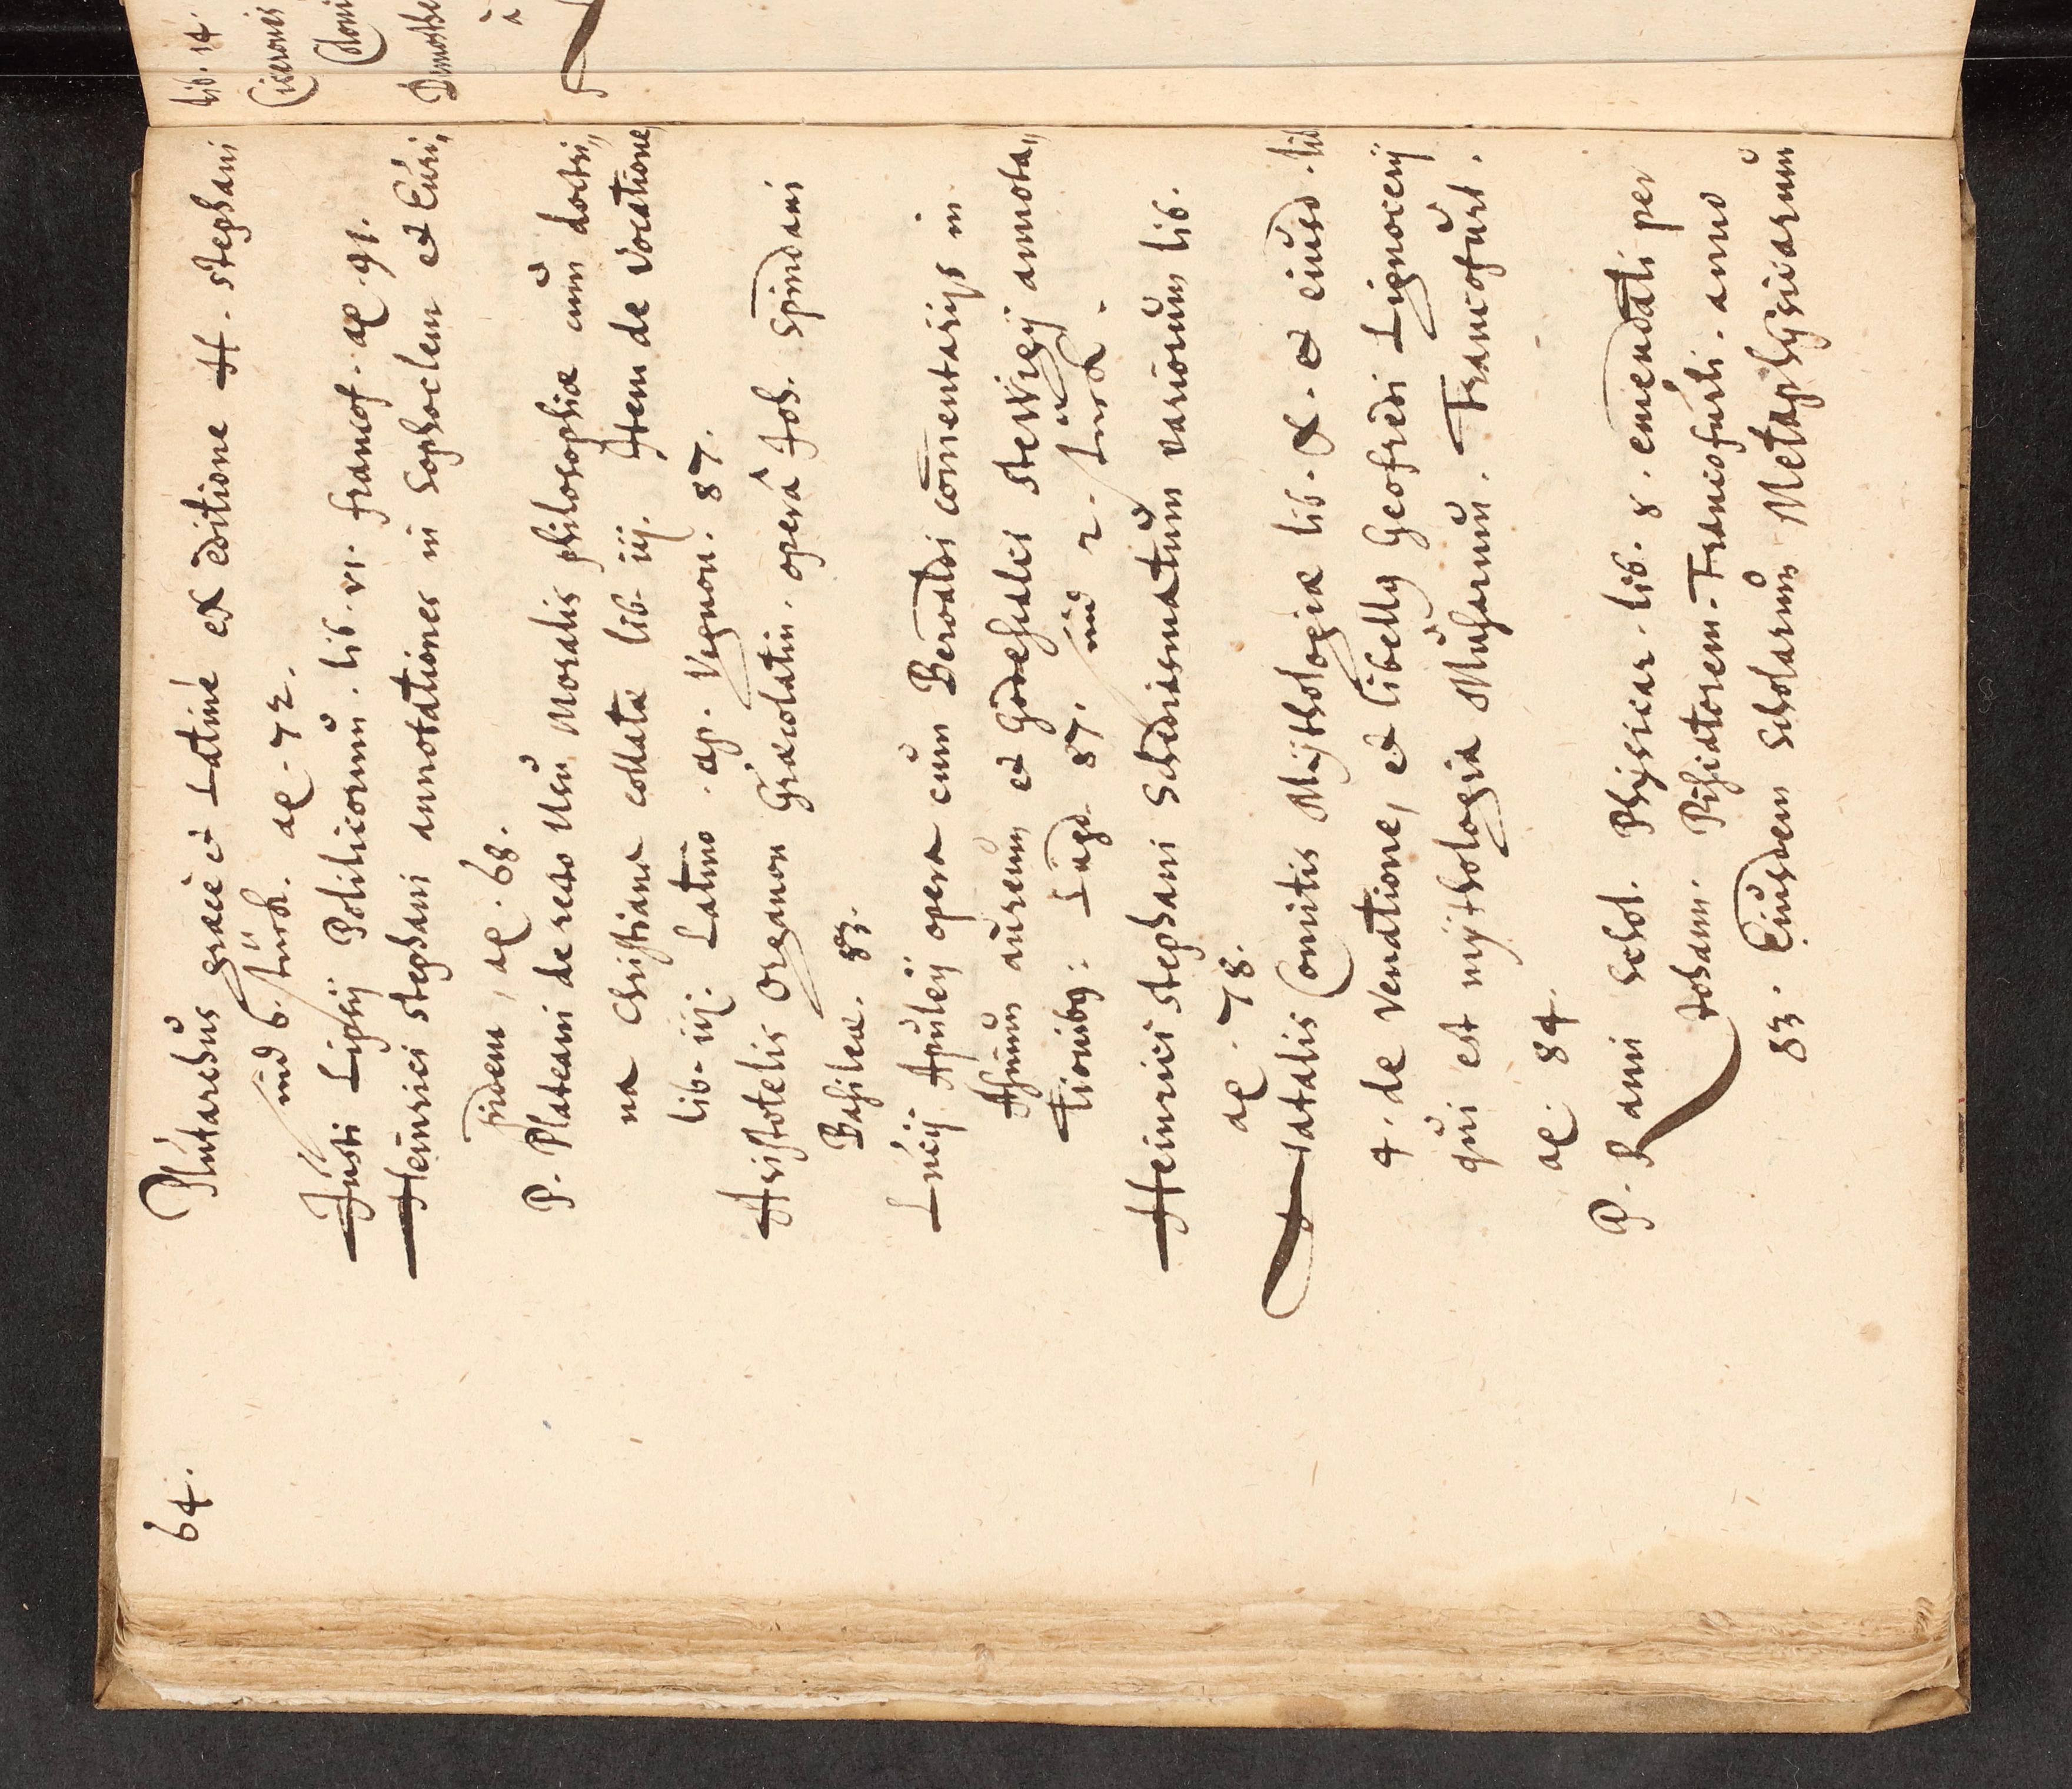 64.
Plutarchus graecè et Latinè ex editione H. Stephani
ind 6. stuck. ae. 72.
Justi Lipsij Politicorum. lib. vi. francof. ae. 91.
Heinrici Stephani annotationes in Sophoclem et Euri„
pidem, ae. 68.
P. Plateani de recto usu Moralis philosophiae cum doctri„
na Christiana collata lib. iij. Item de vocatione
lib. iij. Latino. ap. Vegnon. 87.
Aristotelis Organon Graecolatin. operâ Joh. Spindani
Basileae. 83.
Lucij Apuleij opera cum Beroaldi com̅entarijs in
Asinum aureum et Godeschalci Stewigij annota„
tionibus: Lugd. 87. ind 2. stuck.
Heinrici Stephani Schediasmatum variorum lib.
ae. 78.
Natalis Comitis Mythologiae lib. X. et eiusd. lib
4. de venatione, et libellus Geofredi Lignocerij
qui est mythologia Musarum. Francofurt.
ae. 84.
P. Rami Schol. Physicar. lib. 8. emendati per
Johann. Pisiatorem. Francofurti. anno
83. Eiusdem Scholarum Metaphysicarum
lib. 14.
Ciceronis
Coloni
Demosthe